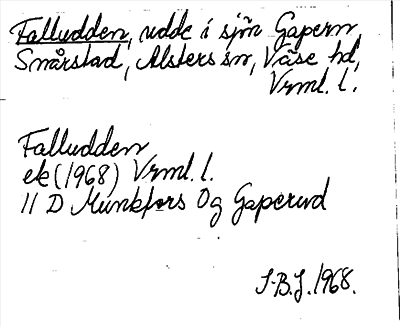 Falludden, udde i sjön Gapern
Smårstad, Alsters sn, Väse hd,
Vrml. l.
Falludden
ek (1968) Vrml. l.
11 D Munkfors 0g Gaperud
S.B.J. 1968.